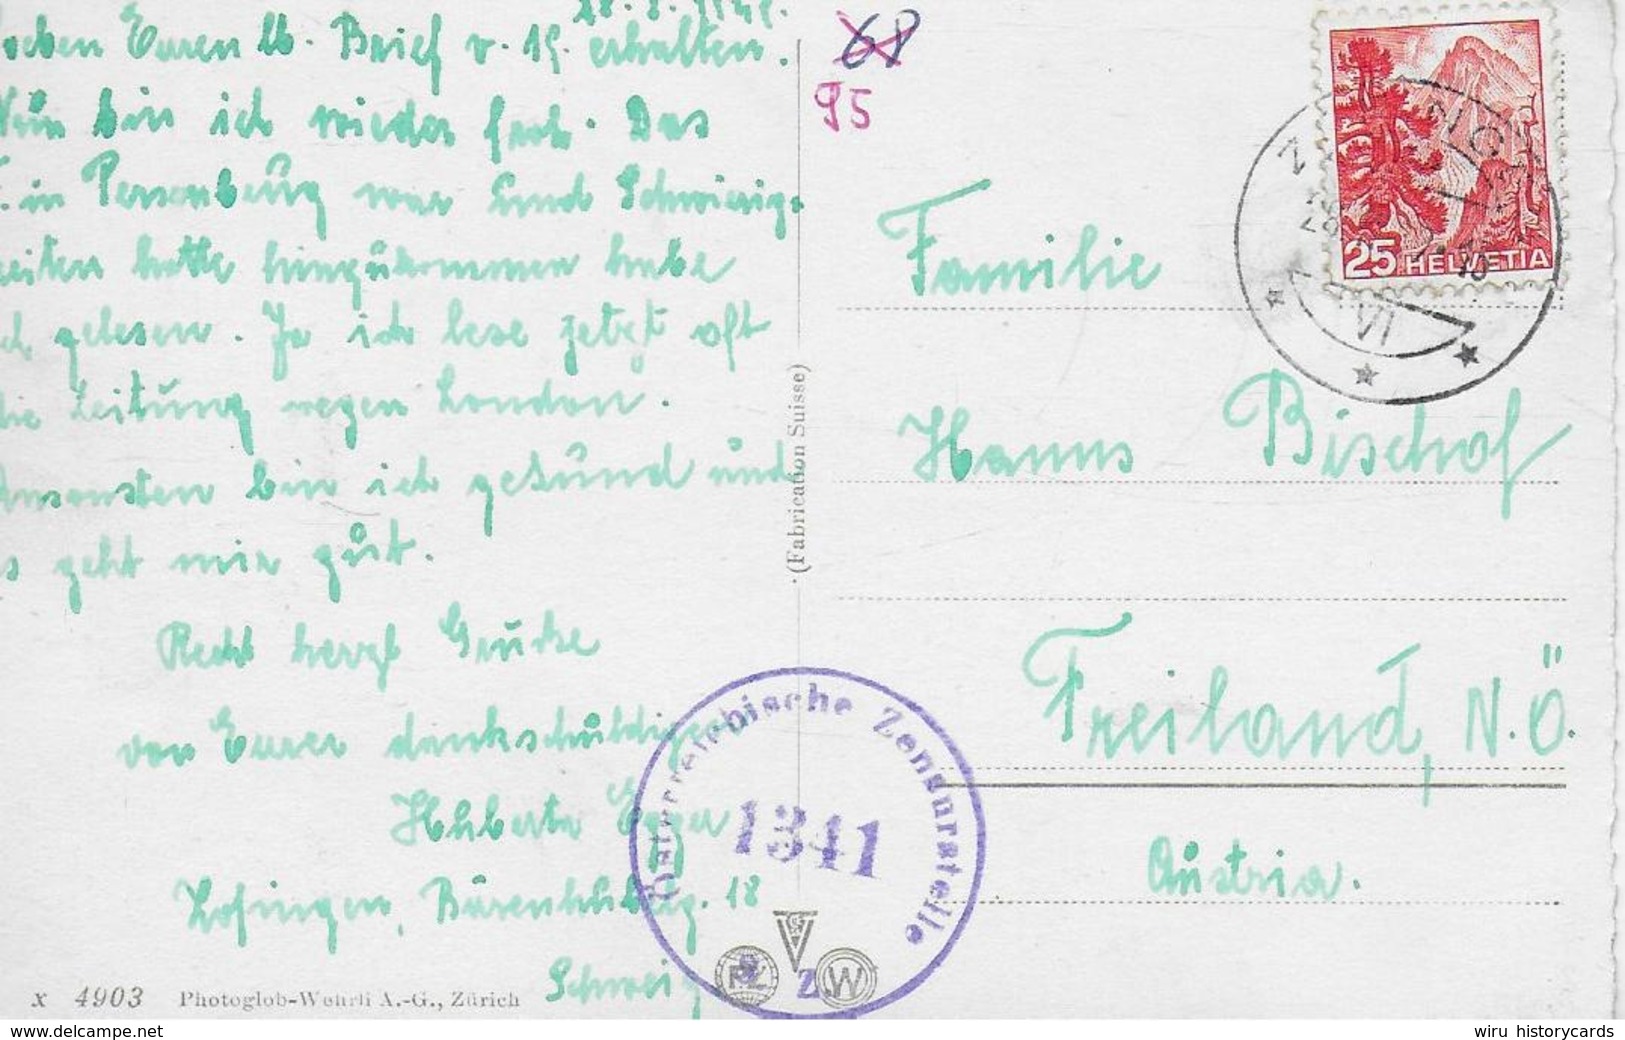 Euren lb. Brief v. 15. erhalten.
bin ich wieder froh. Das
in Persenbeug war und Schwierig-
keiten hatte hinzukommen habe
ich gelesen. Ja ich lese jetzt oft
die Zeitung wegen London.
Ansonsten bin ich gesund und
es geht mir gut.
Recht herzl Grüsse
von Eurer dankschuldigen
Huberta
Zofingen, 18
Schweiz
x 4903 Photoglob-Wehrli A.-G., Zürich
(Fabrication Suisse)
68
95
25 HELVETIA
VI
Familie
Hanns Bischof
Freiland, N.Ö.
Austria.
Österreichische Zensurstelle
1341
PZ
W
wiru historycards